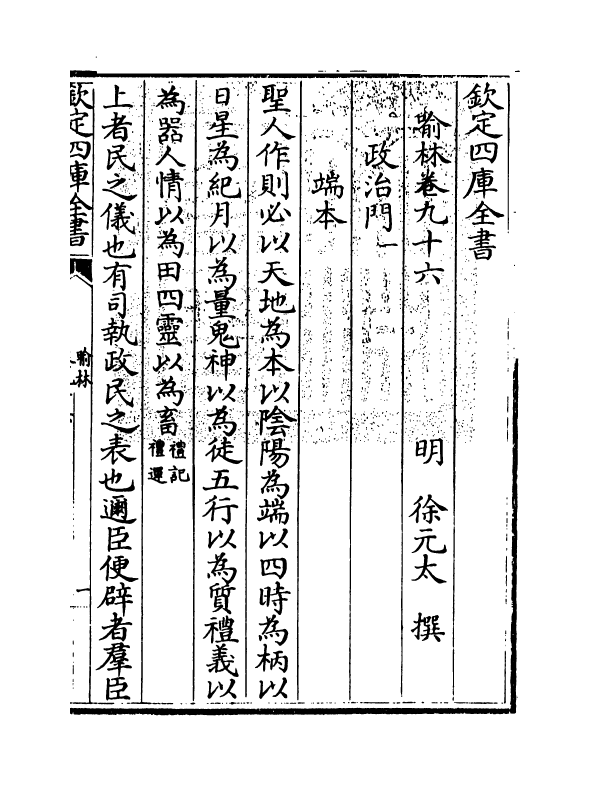 欽定四庫全書
喻林卷九十六　　　　明　徐元太　撰
政治門一
端本
聖人作則必以天地為本以陰陽為端以四時為柄以
日星為紀月以為量鬼神以為徒五行以為質禮義以
為器人情以為田四靈以為畜禮記禮運
上者民之儀也有司執政民之表也邇臣便辟者羣臣
欽定四庫全書
喻林
一